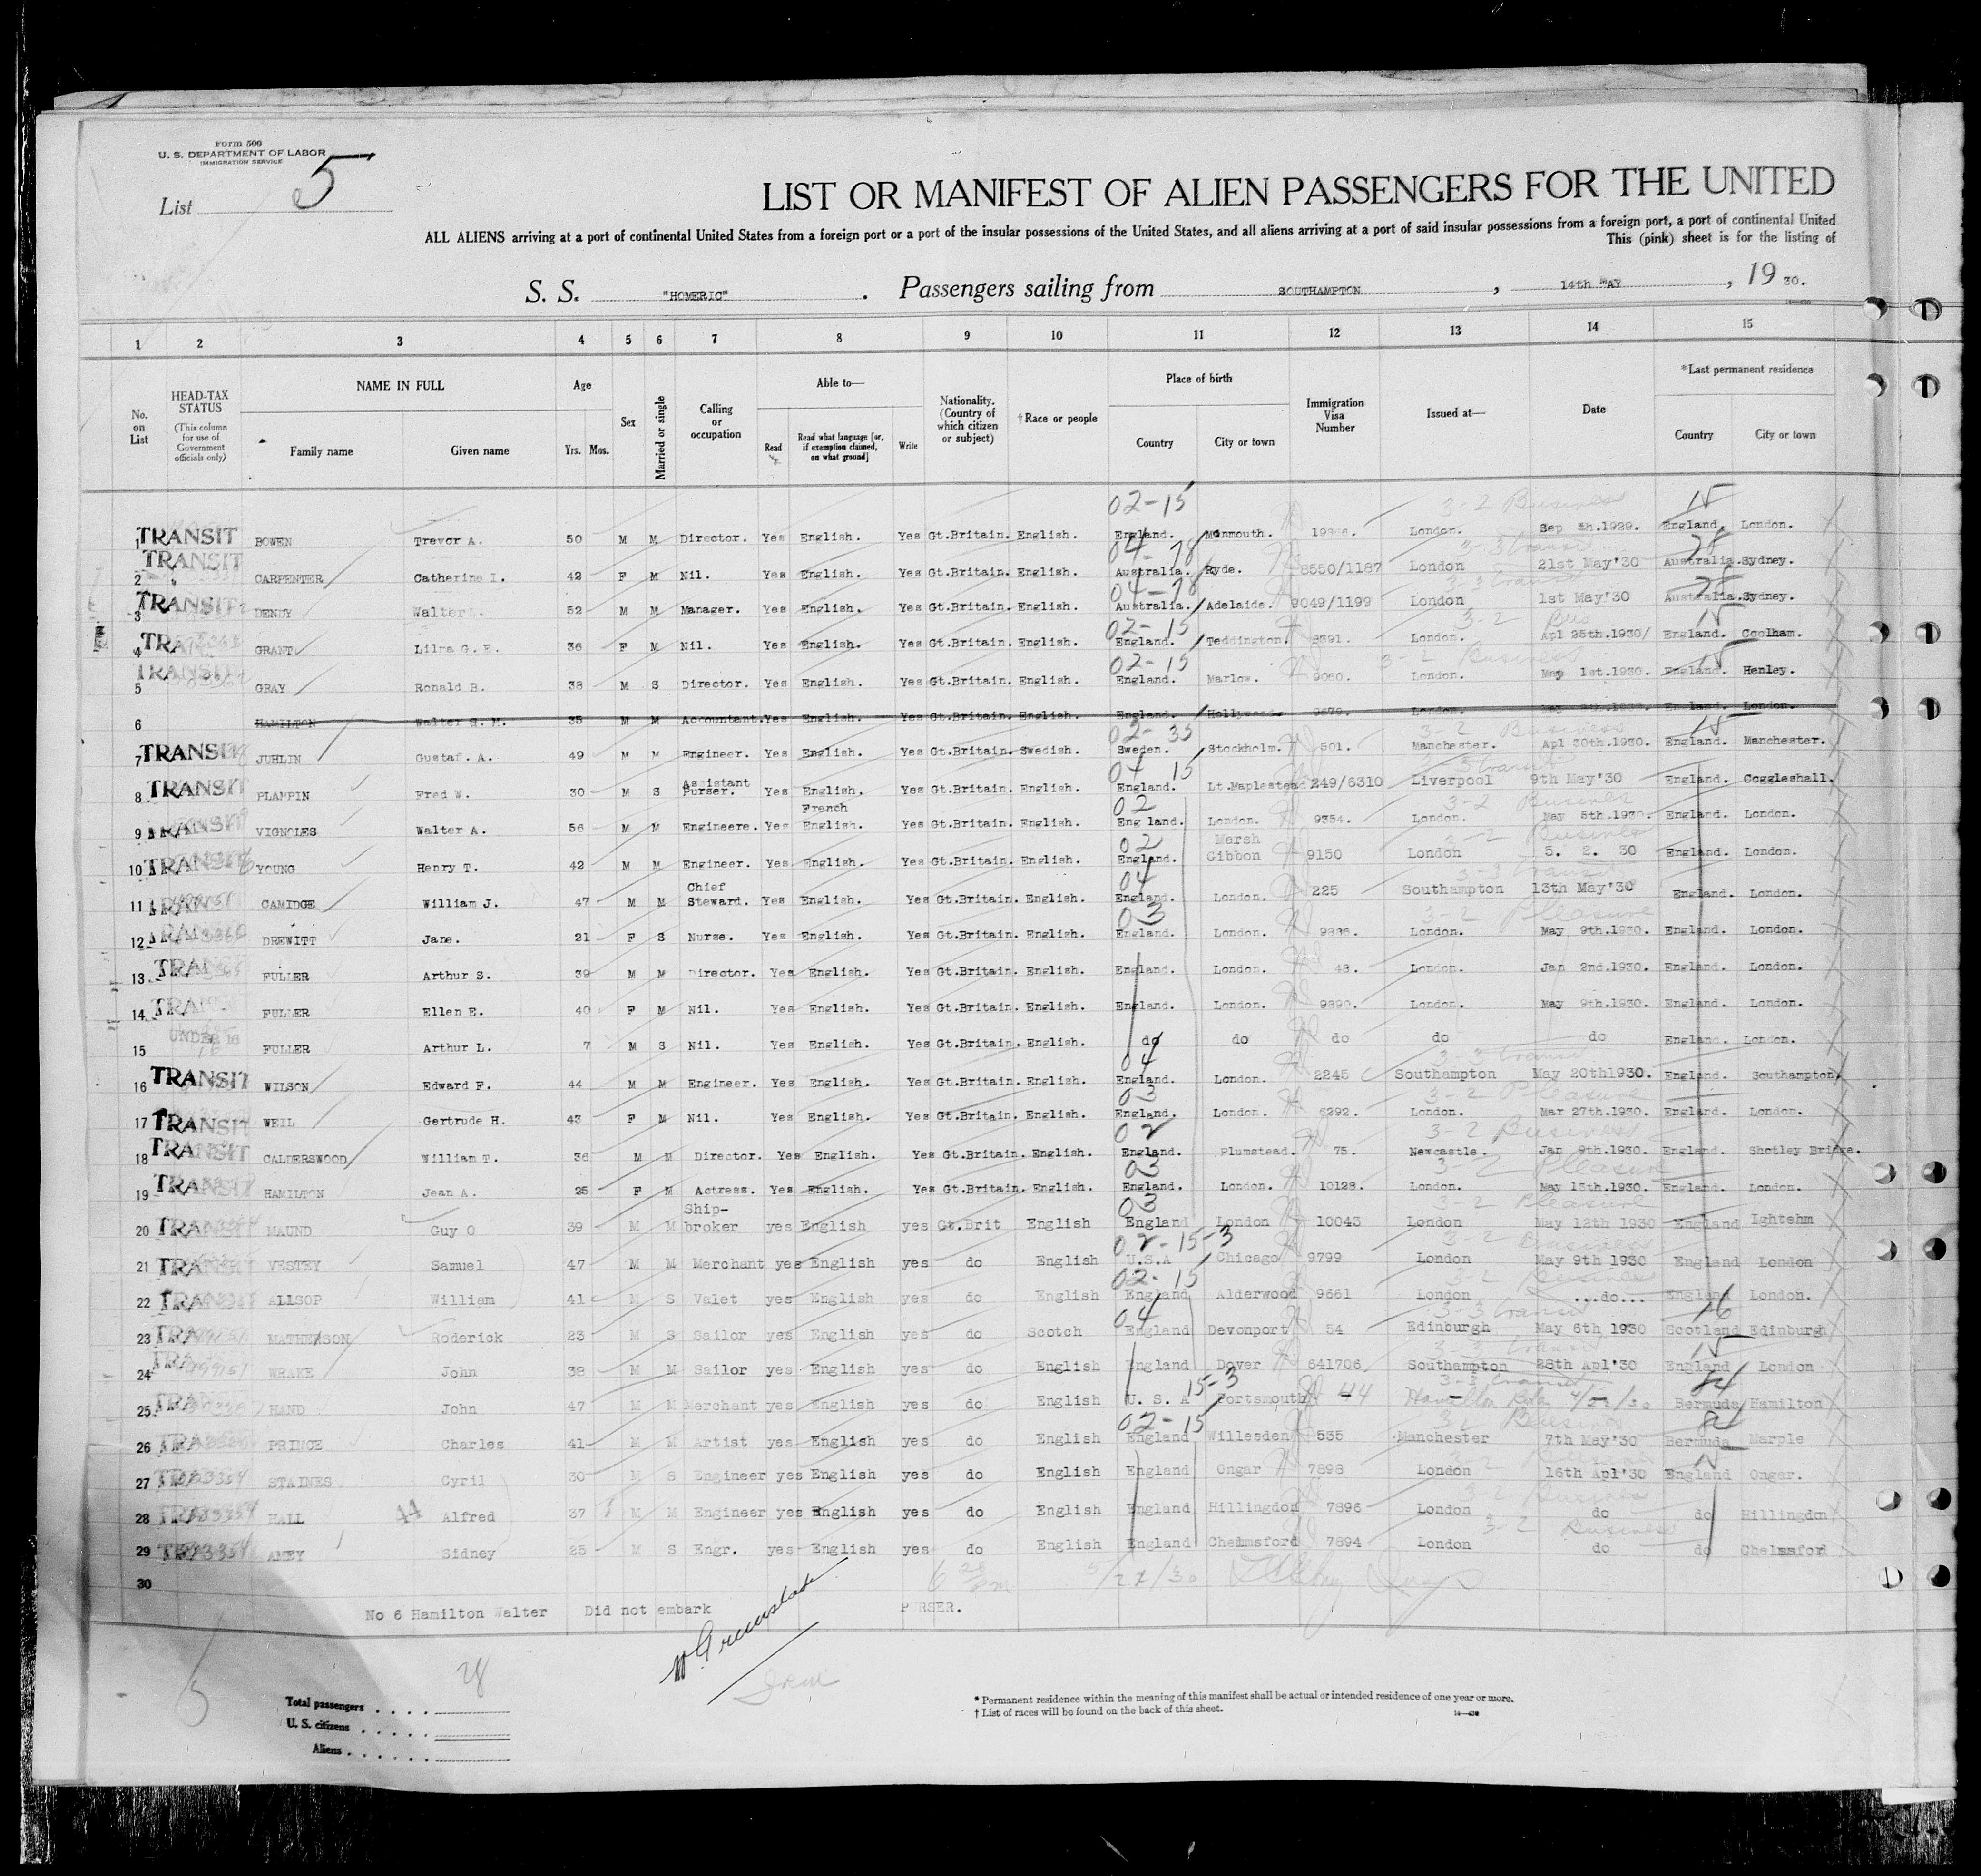 Form 500
U. S. DEPARTMENT OF LABOR
IMMIGRATION SERVICE
List 5
LIST OR MANIFEST OF ALIEN PASSENGERS FOR THE UNITED
ALL ALIENS arriving at a port of continental United States from a foreign port or a port of the insular possessions of the United States, and all aliens arriving at a port of said insular possessions from a foreign port, a port of continental United
This (pink) sheet is for the listing of
S. S. "HOMERIC". Passengers sailing from SOUTHAMPTON, 14th MAY, 19 30.
1 2 3 4 5 6 7 8 9 10 11 12 13 14 15
No. on List
HEAD-TAX STATUS (This column for use of Government officials only)
NAME IN FULL
Family name Given name
Age
Yrs. Mos.
Sex
Married or single
Calling or occupation
Able to—
Read Read what language [or, if exemption claimed, on what ground] Write
Nationality. (Country of which citizen or subject)
†Race or people
Place of birth
Country City or town
Immigration Visa Number
Issued at—
Date
*Last permanent residence
Country City or town
02-15 3-2 Business 15
1 TRANSIT BOWEN Trevor A. 50 M M Director. Yes English. Yes Gt.Britain. English. England. Monmouth. London. Sep 1929. England. London.
04-78 3-3 transit 78
2 TRANSIT CARPENTER Catherine I. 42 F M Nil. Yes English. Yes Gt.Britain. English. Australia. Ryde. 8550/1187 London 21st May'30 Australia. Sydney.
04-78 3-3 transit 78
3 TRANSIT DENDY Walter 52 M M Manager. Yes English. Yes Gt.Britain. English. Australia. Adelaide. 9049/1199 London 1st May'30 Australia. Sydney.
02-15 3-2 Bus 15
4 TRANSIT GRANT Lilra G. E. 36 F M Nil. Yes English. Yes Gt.Britain. English. England. Teddington. 8391. London. Apl 25th.1930/ England. Coolham.
02-15 3-2 Business 15
5 TRANSIT GRAY Ronald B. 38 M S Director. Yes English. Yes Gt.Britain. English. England. Marlow. 9060. London. May 1st.1930. England. Henley.
6 HAMILTON Walter G. M. 35 M M Accountant. Yes English. Yes Gt.Britain. English. England. London. England. London.
02-35 3-2 Business 15
7 TRANSIT JUHLIN Gustaf. A. 49 M M Engineer. Yes English. Yes Gt.Britain. Swedish. Sweden. Stockholm. 501. Manchester. Apl 30th.1930. England. Manchester.
04 15 3-3 transit
8 TRANSIT PLAMPIN Fred W. 30 M S Assistant Purser. Yes English. Yes Gt.Britain. English. England. Lt.Maplestead 249/6310 Liverpool 9th May'30 England. Coggleshall.
02 3-2 Business
9 TRANSIT VIGNOLES Walter A. 56 M M Engineere. Yes French English. Yes Gt.Britain. English. Eng land. London. 9354. London. May 5th.1930. England. London.
02 3-2 Business
10 TRANSIT YOUNG Henry T. 42 M M Engineer. Yes English. Yes Gt.Britain. English. England. Marsh Gibbon 9150 London 5. 2. 30 England. London.
04 3-3 transit
11 TRANSIT CAMIDGE William J. 47 M M Chief Steward. Yes English. Yes Gt.Britain. English. England. London. 225 Southampton 13th May'30 England. London.
03 3-2 Pleasure
12 TRANSIT DREWITT Jane. 21 F S Nurse. Yes English. Yes Gt.Britain. English. England. London. London. May 9th.1930. England. London.
13 TRANSIT FULLER Arthur S. 39 M M Director. Yes English. Yes Gt.Britain. English. England. London. 48. London. Jan 2nd.1930. England. London.
14 TRANSIT FULLER Ellen E. 40 F M Nil. Yes English. Yes Gt.Britain. English. England. London. 9890. London. May 9th.1930. England. London.
15 UNDER 16 FULLER Arthur L. 7 M S Nil. Yes English. Yes Gt.Britain. English. do do do do do England. London.
04 3-3 transit
16 TRANSIT WILSON Edward F. 44 M M Engineer. Yes English. Yes Gt.Britain. English. England. London. 2245 Southampton May 20th1930. England. Southampton.
03 3-2 Pleasure
17 TRANSIT WEIL Gertrude H. 43 F M Nil. Yes English. Yes Gt.Britain. English. England. London. 6292. London. Mar 27th.1930. England. London.
02 3-2 Business
18 TRANSIT CALDERSWOOD William T. 36 M M Director. Yes English. Yes Gt.Britain. English. England. Plumstead. 75. Newcastle. Jan 9th.1930. England. Shotley Bridge.
03 3-2 Pleasure
19 TRANSIT HAMILTON Jean A. 25 F M Actress. Yes English. Yes Gt.Britain. English. England. London. 10128. London. May 13th.1930. England. London.
03 3-2 Pleasure
20 TRANSIT MAUND Guy O 39 M M Ship-broker yes English yes Gt.Brit English England London 10043 London May 12th 1930 England Ightehm
02-15-3 3-2 Business
21 TRANSIT VESTEY Samuel 47 M M Merchant yes English yes do English U.S.A Chicago 9799 London May 9th 1930 England London
02-15 3-2 Business
22 TRANSIT ALLSOP William 41 M S Valet yes English yes do English England Alderwood 9661 London ...do... England London.
04 3-3 transit 16
23 MATHERSON Roderick 23 M S Sailor yes English yes do Scotch England Devonport 54 Edinburgh May 6th 1930 Scotland Edinburgh
3-3 transit 15
24 WRAKE John 38 M M Sailor yes English yes do English England Dover 641706 Southampton 28th Apl'30 England London
15-3 3-3 transit 84
25 HAND John 47 M M Merchant yes English yes do English U. S. A Portsmouth 44 Hamilton Bda Bermuda Hamilton
02-15 3-2 Business 84
26 PRINCE Charles 41 M M Artist yes English yes do English England Willesden 535 Manchester 7th May'30 Bermuda Marple
3-2 15
27 STAINES Cyril 30 M S Engineer yes English yes do English England Ongar 7898 London 16th Apl'30 England Ongar.
3-2 Business
28 HALL 44 Alfred 37 M M Engineer yes English yes do English England Hillingdon 7896 London do do Hillingdon
3-2 Business
29 AMEY Sidney 25 M S Engr. yes English yes do English England Chelmsford 7894 London do do Chelmsford
30
No 6 Hamilton Walter Did not embark PURSER.
28
Total passengers . . . .
U. S. citizens . . . . .
Aliens . . . . . .
* Permanent residence within the meaning of this manifest shall be actual or intended residence of one year or more.
† List of races will be found on the back of this sheet.